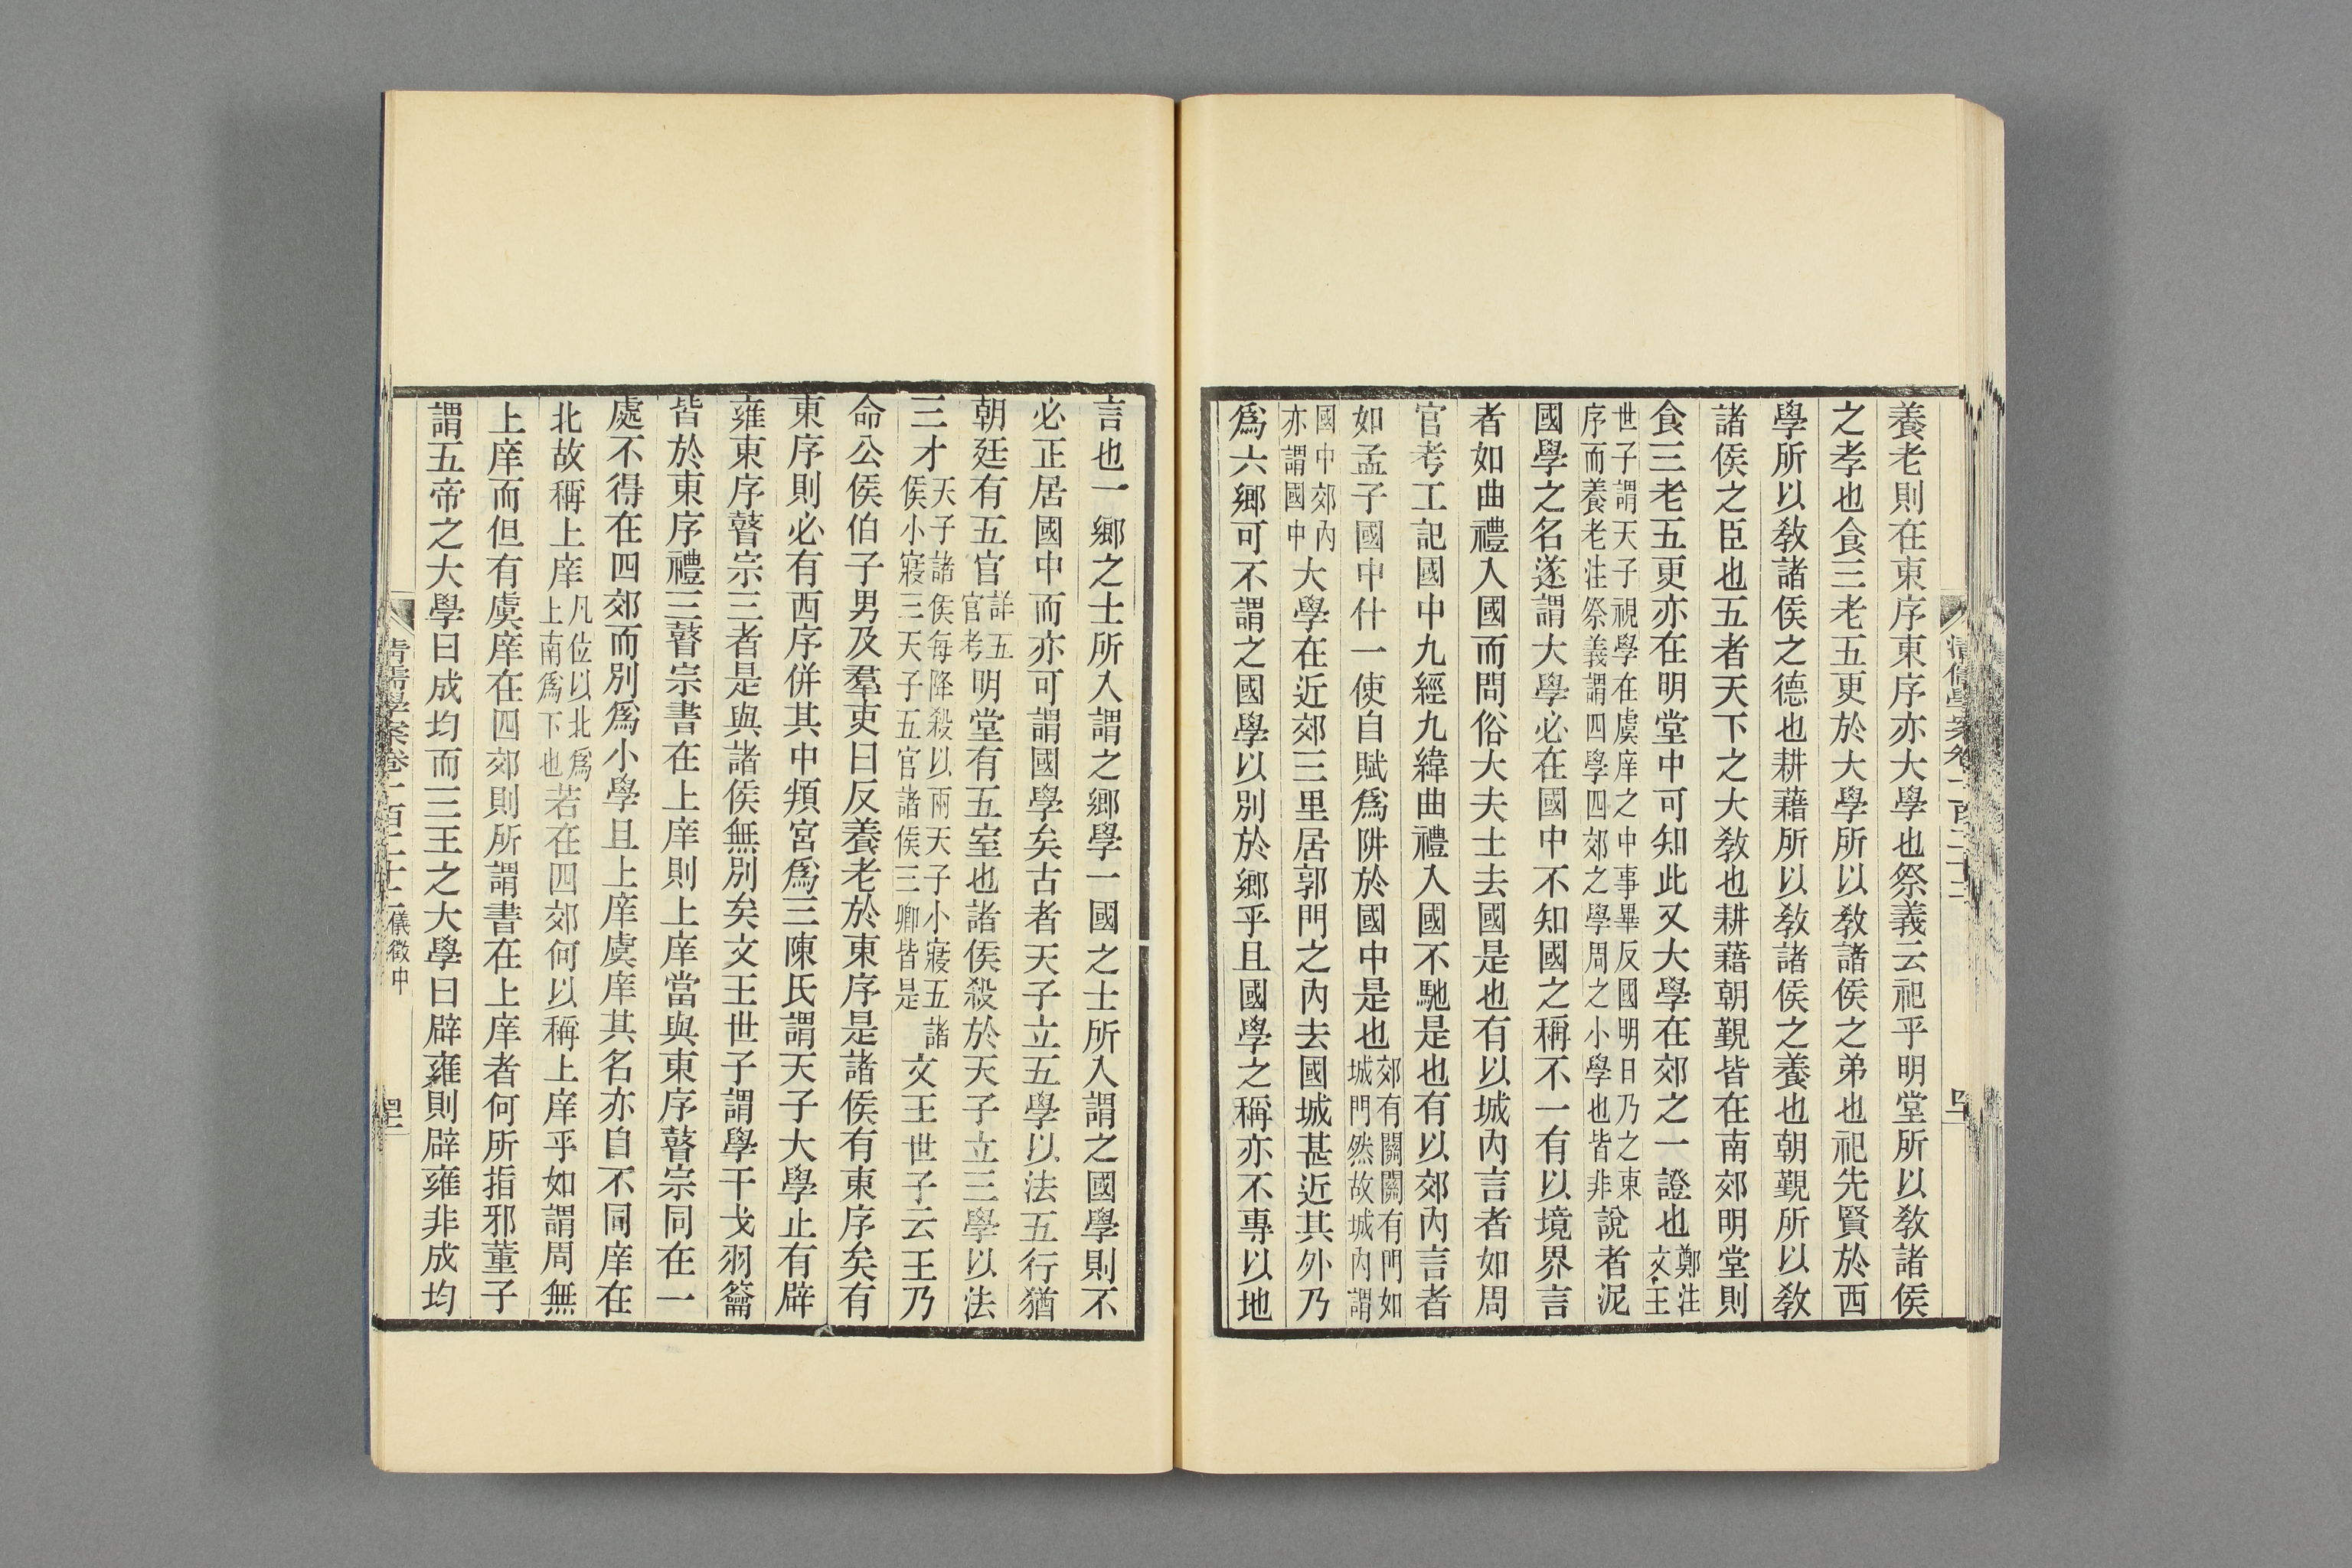 養老則在東序東序亦大學也祭義云祀乎明堂所以敎諸侯
之孝也食三老五更於大學所以敎諸侯之弟也祀先賢於西
學所以敎諸侯之德也耕藉所以敎諸侯之養也朝覲所以敎
諸侯之臣也五者天下之大敎也耕藉朝覲皆在南郊明堂則
食三老五更亦在明堂中可知此又大學在郊之一證也鄭注文王
世子謂天子視學在虞庠之中事畢反國明日乃之東序而養老注祭義謂四學四郊之學周之小學也皆非說者泥
國學之名遂謂大學必在國中不知國之稱不一有以境界言
者如曲禮入國而問俗大夫士去國是也有以城內言者如周
官考工記國中九經九緯曲禮入國不馳是也有以郊內言者
如孟子國中什一使自賦爲阱於國中是也郊有關關有門如城門然故城內謂
國中郊內亦謂國中大學在近郊三里居郭門之內去國城甚近其外乃
爲六鄉可不謂之國學以別於鄉乎且國學之稱亦不專以地
言也一鄉之士所入謂之鄉學一國之士所入謂之國學則不
必正居國中而亦可謂國學矣古者天子立五學以法五行猶
朝廷有五官詳五官考明堂有五室也諸侯殺於天子立三學以法
三才天子諸侯每降殺以兩天子小寢五諸侯小寢三天子五官諸侯三卿皆是文王世子云王乃
命公侯伯子男及羣吏曰反養老於東序是諸侯有東序矣有
東序則必有西序併其中頖宮爲三陳氏謂天子大學止有辟
雍東序瞽宗三者是與諸侯無別矣文王世子謂學干戈羽籥
皆於東序禮三瞽宗書在上庠則上庠當與東序瞽宗同在一
處不得在四郊而別爲小學且上庠虞庠其名亦自不同庠在
北故稱上庠凡位以北爲上南爲下也若在四郊何以稱上庠乎如謂周無
上庠而但有虞庠在四郊則所謂書在上庠者何所指邪董子
謂五帝之大學曰成均而三王之大學曰辟雍則辟雍非成均
清儒學案卷一百二十三
儀徵中